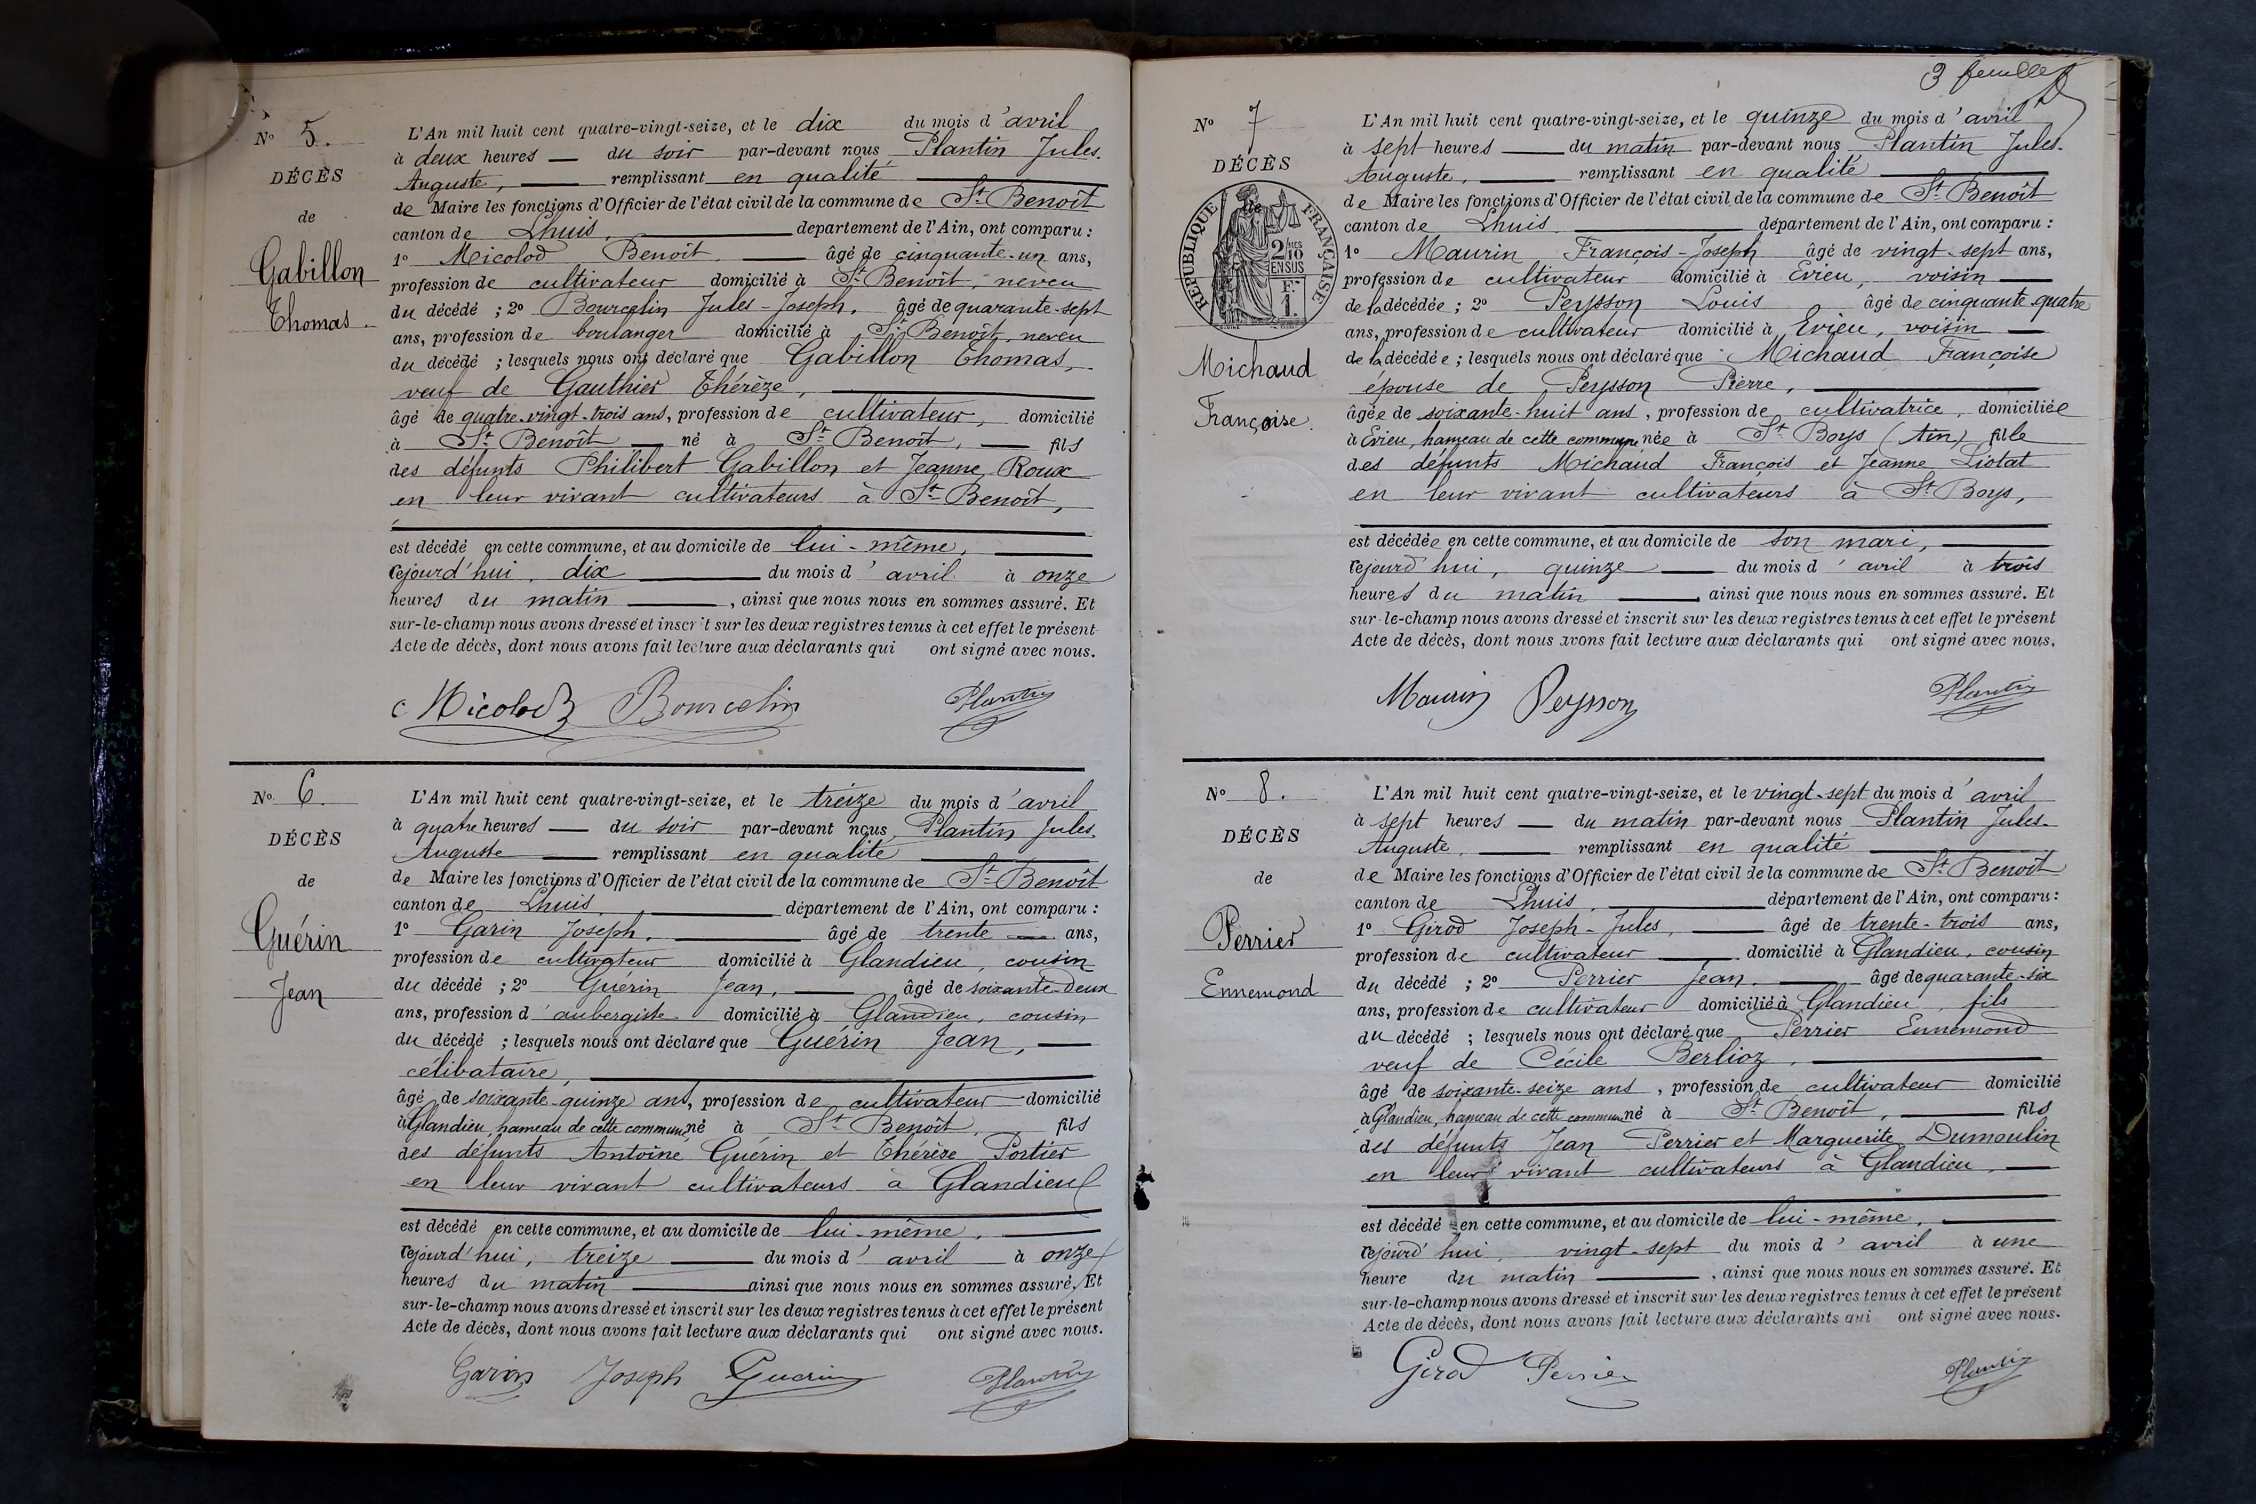 Nº 5.
DÉCÈS
de
Gabillon
Thomas.
L'An mil huit cent quatre-vingt-seize, et le dix du mois d'avril
à deux heures — du soir par-devant nous Plantin Jules-
Auguste, — remplissant en qualité
de Maire les fonctions d'Officier de l'état civil de la commune de St Benoît
canton de Lhuis, — département de l'Ain, ont comparu :
1º Micolod Benoît. — âgé de cinquante-un ans,
profession de cultivateur domicilié à St Benoît, neveu
du décédé ; 2º Bourcelin Jules-Joseph, âgé de quarante-sept
ans, profession de boulanger domicilié à St Benoît, neveu
du décédé ; lesquels nous ont déclaré que Gabillon Thomas,
veuf de Gauthier Thérèze,
âgé de quatre-vingt-trois ans, profession de cultivateur, domicilié
à St Benoît — né à St Benoît, — fils
des défunts Philibert Gabillon et Jeanne Roux
en leur vivant cultivateurs à St Benoît,
est décédé en cette commune, et au domicile de lui-même,
cejourd'hui, dix — du mois d'avril à onze
heures du matin —, ainsi que nous nous en sommes assuré. Et
sur-le-champ nous avons dressé et inscrit sur les deux registres tenus à cet effet le présent
Acte de décès, dont nous avons fait lecture aux déclarants qui ont signé avec nous.
Micolod Bourcelin Plantin
Nº 6.
DÉCÈS
de
Guérin
Jean
L'An mil huit cent quatre-vingt-seize, et le treize du mois d'avril
à quatre heures — du soir par-devant nous Plantin Jules-
Auguste — remplissant en qualité
de Maire les fonctions d'Officier de l'état civil de la commune de St Benoît
canton de Lhuis — département de l'Ain, ont comparu :
1º Garin Joseph, — âgé de trente — ans,
profession de cultivateur domicilié à Glandieu, cousin
du décédé ; 2º Guérin Jean, — âgé de soixante-deux
ans, profession d'aubergiste domicilié à Glandieu, cousin
du décédé ; lesquels nous ont déclaré que Guérin Jean, —
célibataire,
âgé de soixante-quinze ans, profession de cultivateur domicilié
à Glandieu, hameau de cette commune, né à St Benoît, fils
des défunts Antoine Guérin et Thérèse Portier
en leur vivant cultivateurs à Glandieu
est décédé en cette commune, et au domicile de lui-même,
cejourd'hui, treize — du mois d'avril à onze
heures du matin — ainsi que nous nous en sommes assuré. Et
sur-le-champ nous avons dressé et inscrit sur les deux registres tenus à cet effet le présent
Acte de décès, dont nous avons fait lecture aux déclarants qui ont signé avec nous.
Garin Joseph Guerin Plantin
3 feuillet
Nº 7
DÉCÈS
RÉPUBLIQUE FRANÇAISE
2/10 EN SUS
1 Fr
Michaud
Françoise.
L'An mil huit cent quatre-vingt-seize, et le quinze du mois d'avril
à sept heures — du matin par-devant nous Plantin Jules-
Auguste, — remplissant en qualité
de Maire les fonctions d'Officier de l'état civil de la commune de St Benoît
canton de Lhuis — département de l'Ain, ont comparu :
1º Maurin François-Joseph âgé de vingt-sept ans,
profession de cultivateur domicilié à Evieu, voisin —
de la décédée ; 2º Peysson Louis âgé de cinquante-quatre
ans, profession de cultivateur domicilié à Evieu, voisin —
de la décédée ; lesquels nous ont déclaré que Michaud Françoise
épouse de Peysson Pierre,
âgée de soixante-huit ans, profession de cultivatrice, domiciliée
à Evieu, hameau de cette commune née à St Boys (Ain) fille
des défunts Michaud François et Jeanne Liotat
en leur vivant cultivateurs à St Boys,
est décédée en cette commune, et au domicile de son mari,
cejourd'hui, quinze — du mois d'avril à trois
heures du matin — ainsi que nous nous en sommes assuré. Et
sur-le-champ nous avons dressé et inscrit sur les deux registres tenus à cet effet le présent
Acte de décès, dont nous avons fait lecture aux déclarants qui ont signé avec nous.
Maurin Peysson Plantin
Nº 8.
DÉCÈS
de
Perrier
Ennemond
L'An mil huit cent quatre-vingt-seize, et le vingt-sept du mois d'avril
à sept heures — du matin par-devant nous Plantin Jules-
Auguste, — remplissant en qualité
de Maire les fonctions d'Officier de l'état civil de la commune de St Benoît
canton de Lhuis, — département de l'Ain, ont comparu :
1º Girod Joseph-Jules, — âgé de trente-trois ans,
profession de cultivateur — domicilié à Glandieu, cousin
du décédé ; 2º Perrier Jean, — âgé de quarante-six
ans, profession de cultivateur domicilié à Glandieu, fils
du décédé ; lesquels nous ont déclaré que Perrier Ennemond
veuf de Cécile Berlioz,
âgé de soixante-seize ans, profession de cultivateur domicilié
à Glandieu, hameau de cette commune né à St Benoît, — fils
des défunts Jean Perrier et Marguerite Dumoulin
en leur vivant cultivateurs à Glandieu, —
est décédé en cette commune, et au domicile de lui-même,
cejourd'hui, vingt-sept du mois d'avril à une
heure du matin —, ainsi que nous nous en sommes assuré. Et
sur-le-champ nous avons dressé et inscrit sur les deux registres tenus à cet effet le présent
Acte de décès, dont nous avons fait lecture aux déclarants qui ont signé avec nous.
Girod Perrier Plantin